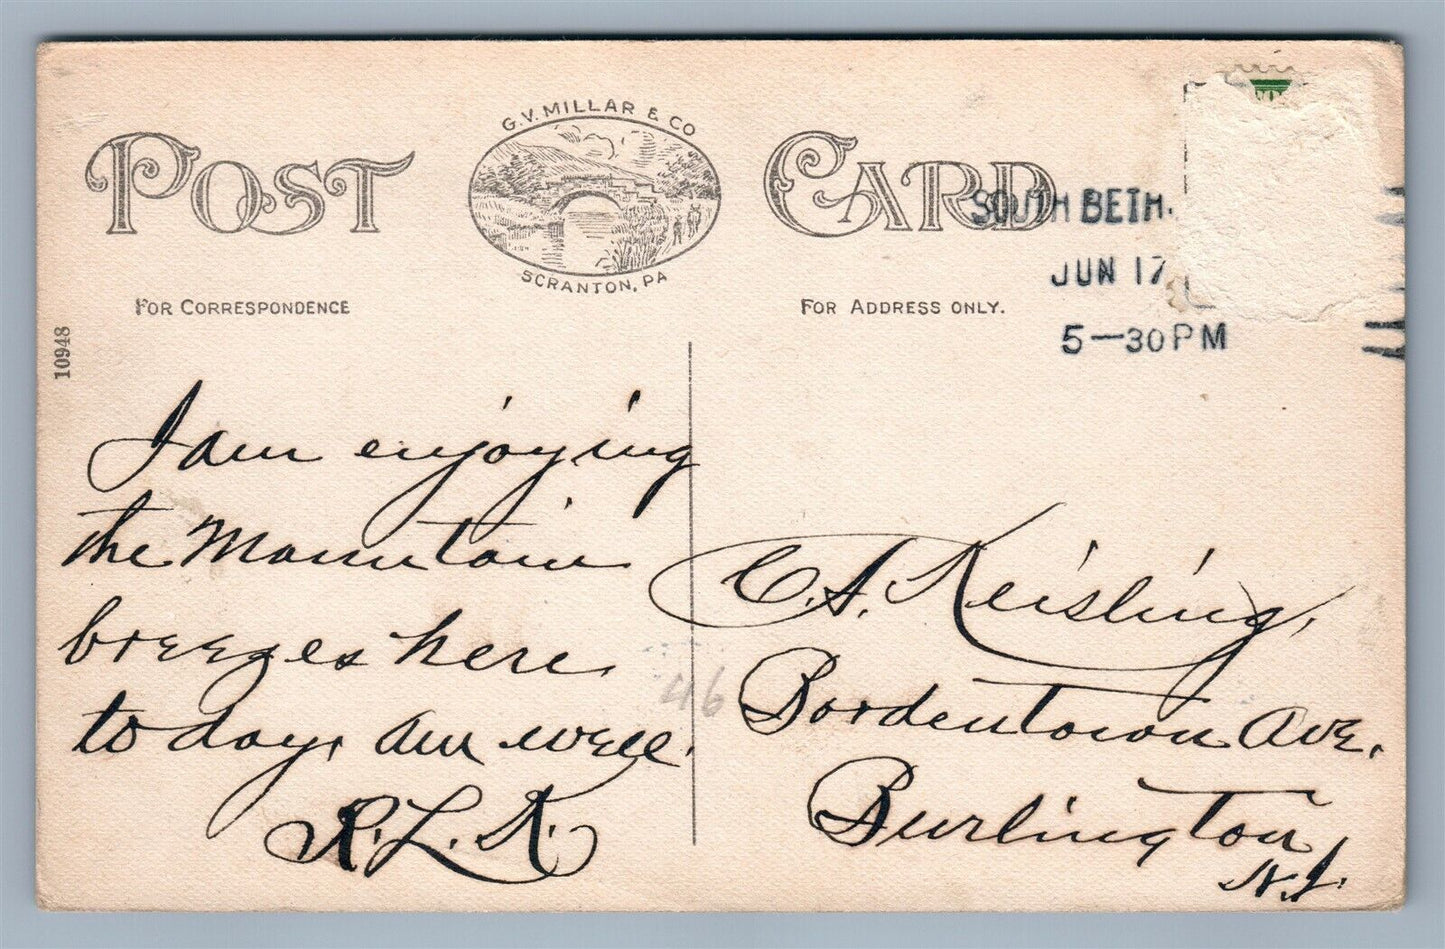 POST CARD
G.V. MILLAR & CO
SCRANTON, PA
FOR CORRESPONDENCE
FOR ADDRESS ONLY.
SOUTH BETH.
JUN 17
5—30 PM
10948
I am enjoying
the Mountain
breezes here
to day, am well.
R.L.K.
46
C.A. Keisling,
Bordentown Ave.,
Burlington
N.J.